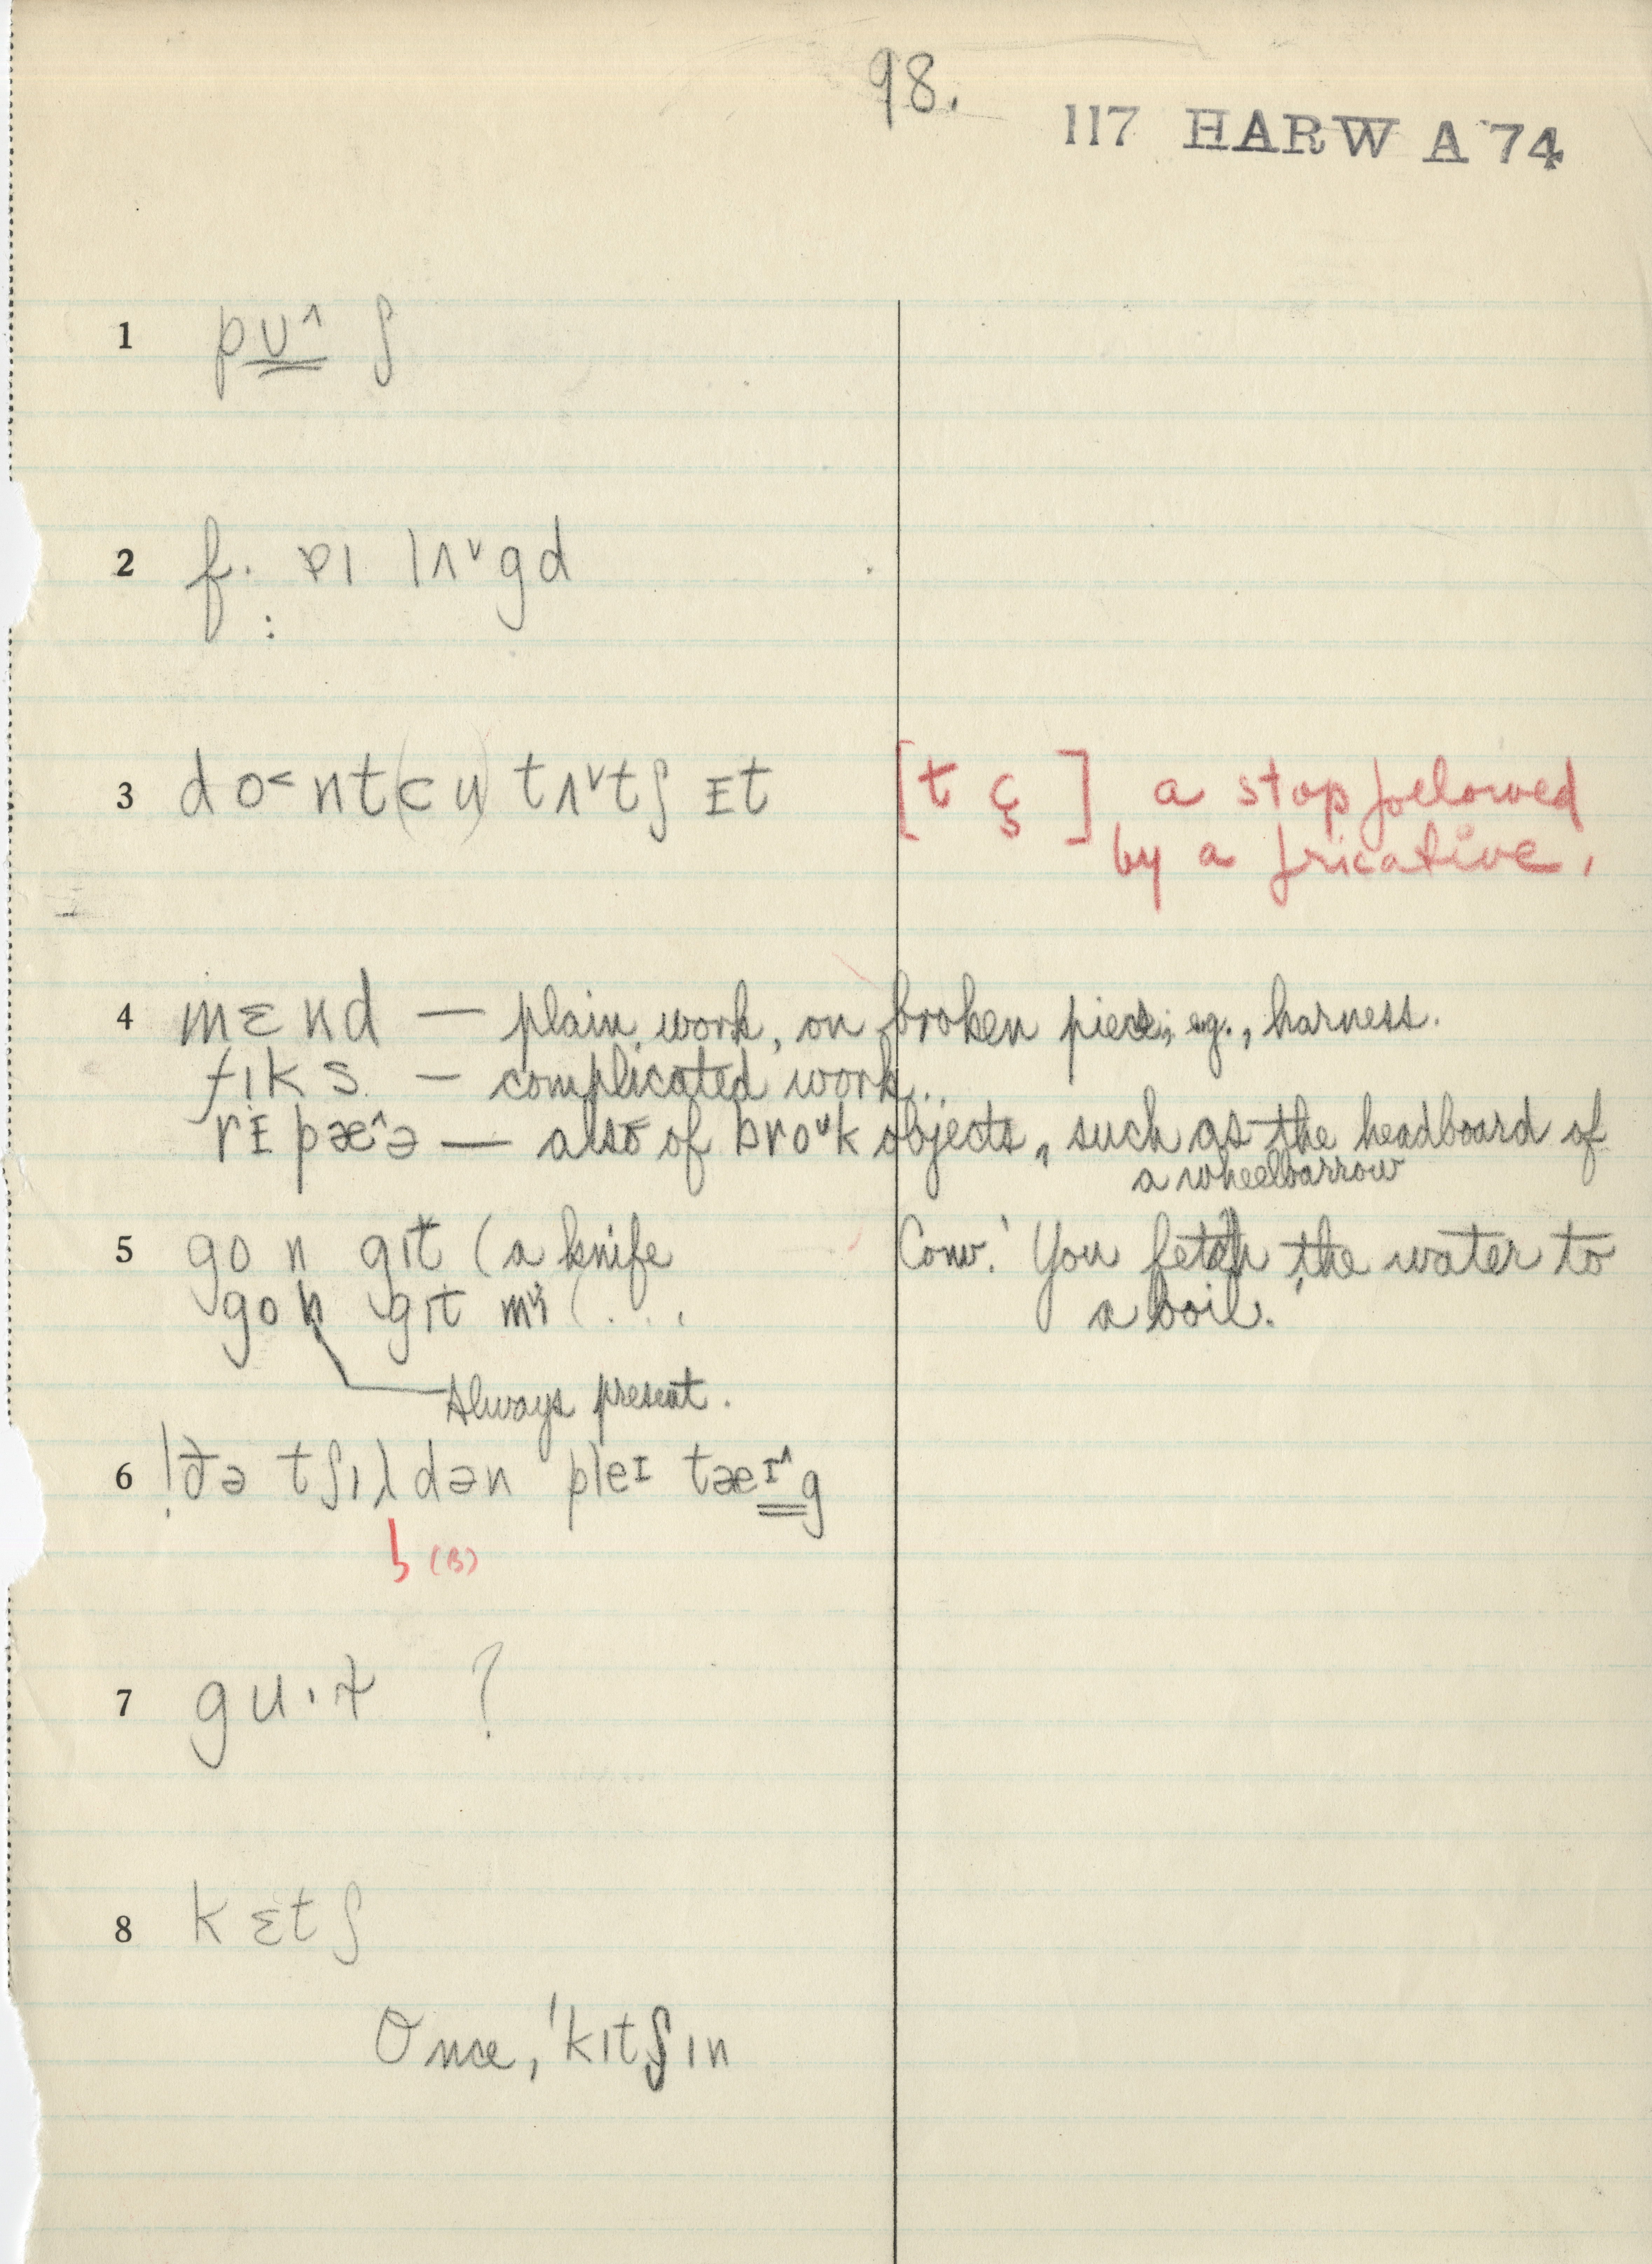 98.
117 HARW A 74
1 pʊ^ ʃ
2 f. ɒɪ lʌᵛgd
3 do˂nt(cu) tʌᵛtʃ ɪt [t ç] a stop followed
by a fricative.
4 mɛnd — plain work, on broken piece; eg., harness.
fɪks — complicated work..
rɪpæ^ə — also of broᵘk objects, such as the headboard of
a wheelbarrow
5 go n gɪt (a knife Conv.' You fetch the water to
go n gɪt mi (... a boil.
Always present.
6 !ðə tʃɪldən pleɪ tæɪ^g
(B)
7 gu·ɫ ?
8 kɛtʃ
Once, 'kɪtʃɪn